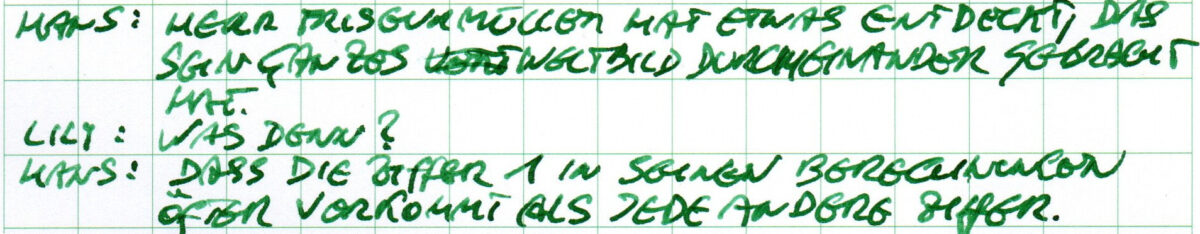 HANS: HERR FRISEURMÜLLER HAT ETWAS ENTDECKT, DAS
SEIN GANZES WELTBILD DURCHEINANDER GEBRACHT
HAT.
LILY: WAS DENN?
HANS: DASS DIE ZIFFER 1 IN SEINEN BERECHNUNGEN
ÖFTER VORKOMMT ALS JEDE ANDERE ZIFFER.